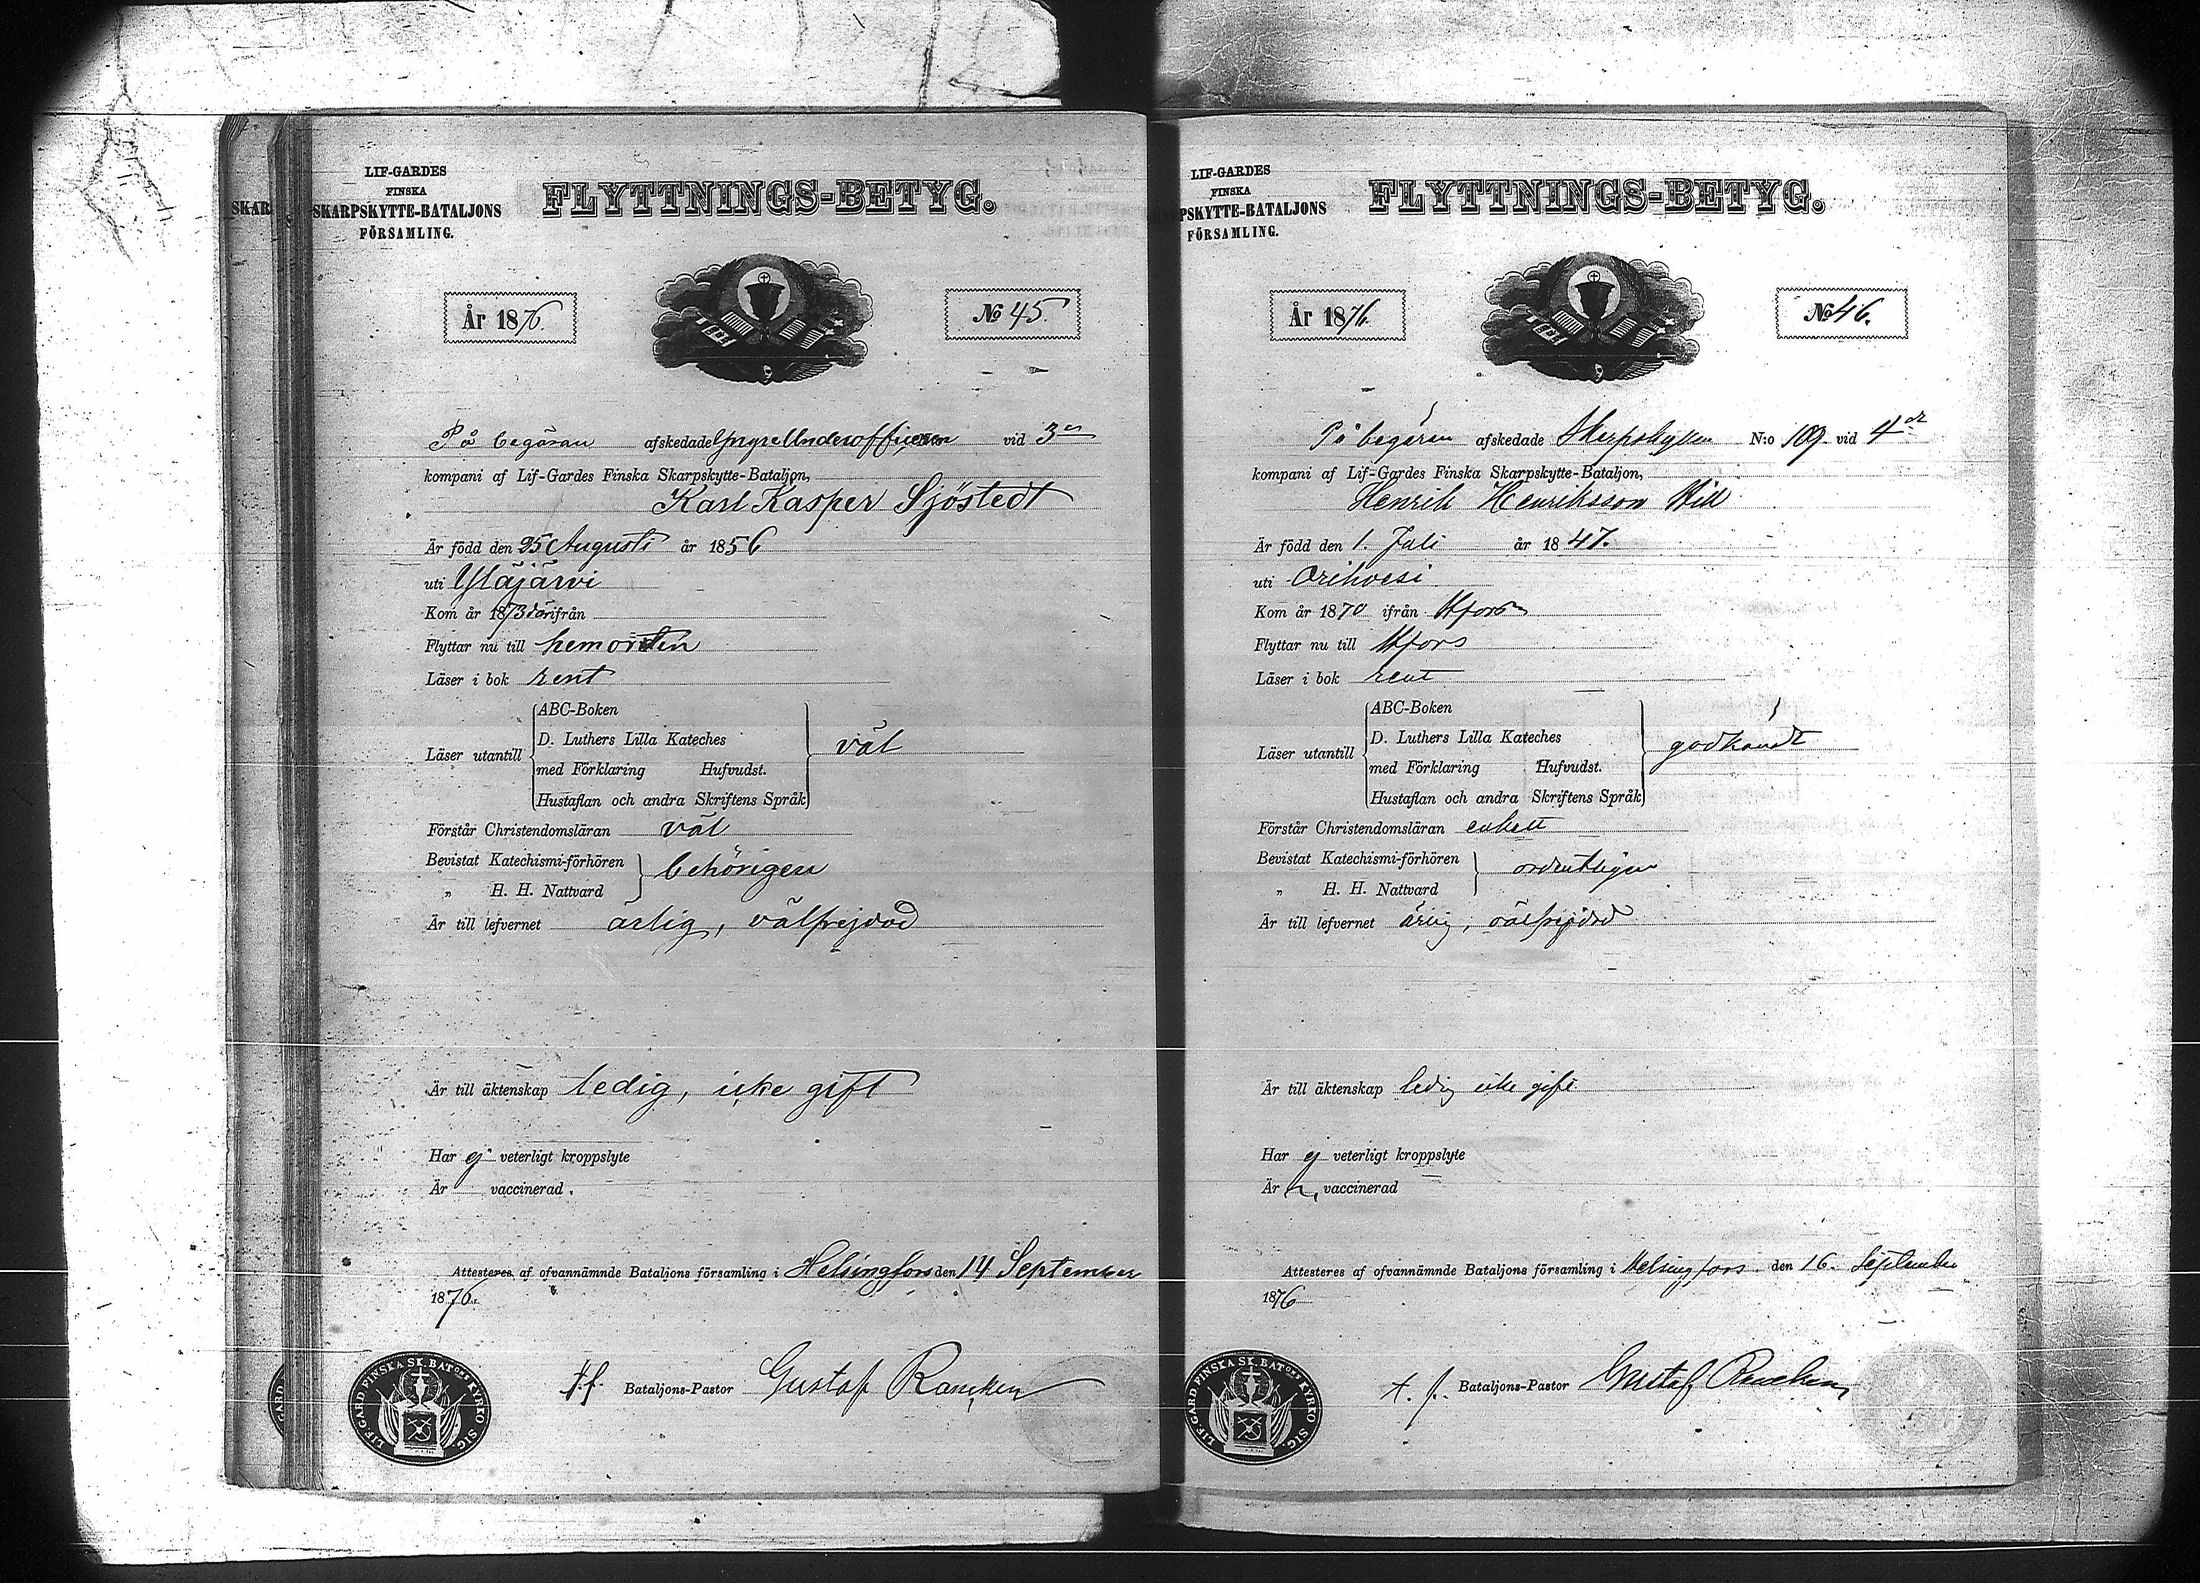 SKAR
LIF-GARDES
FINSKA
SKARPSKYTTE-BATALJONS
FÖRSAMLING.
FLYTTNINGS-BETYG.
År 1876.
No 45.
På begäran afskedade Yngre Underofficeren vid 3e
kompani af Lif-Gardes Finska Skarpskytte-Bataljon,
Karl Kasper Sjöstedt
Är född den 25 Augusti år 1856
uti Ylöjärvi
Kom år 1873 därifrån
Flyttar nu till hemorten
Läser i bok rent
Läser utantill
ABC-Boken
D. Luthers Lilla Kateches
med Förklaring Hufvudst.
Hustaflan och andra Skriftens Språk
väl
Förstår Christendomsläran väl
Bevistat Katechismi-förhören
„ H. H. Nattvard
behörigen
Är till lefvernet ärlig, välfrejdad
Är till äktenskap ledig, icke gift
Har ej veterligt kroppslyte
Är vaccinerad.
Attesteras af ofvannämnde Bataljons församling i Helsingfors den 14 September
1876.
t.f. Bataljons-Pastor Gustaf Rancken
LIF. GARD. FINSKA SK. BATONS KYRKO SIG.
LIF-GARDES
FINSKA
PSKYTTE-BATALJONS
FÖRSAMLING.
FLYTTNINGS-BETYG.
År 1876.
No 46.
På begäran afskedade Skarpskytten N:o 109 vid 4de
kompani af Lif-Gardes Finska Skarpskytte-Bataljon,
Henrik Henriksson
Är född den 1. Juli år 1847.
uti Orihvesi
Kom år 1870 ifrån Hfors
Flyttar nu till Hfors
Läser i bok rent
Läser utantill
ABC-Boken
D. Luthers Lilla Kateches
med Förklaring Hufvudst.
Hustaflan och andra Skriftens Språk
godkändt
Förstår Christendomsläran enkelt
Bevistat Katechismi-förhören
„ H. H. Nattvard
ordentligen
Är till lefvernet ärlig, välfrejdad
Är till äktenskap ledig icke gift
Har ej veterligt kroppslyte
Är vaccinerad
Attesteres af ofvannämnde Bataljons församling i Helsingfors den 16. September
1876
t. f. Bataljons-Pastor Gustaf Rancken
LIF. GARD. FINSKA SK. BATONS KYRKO SIG.